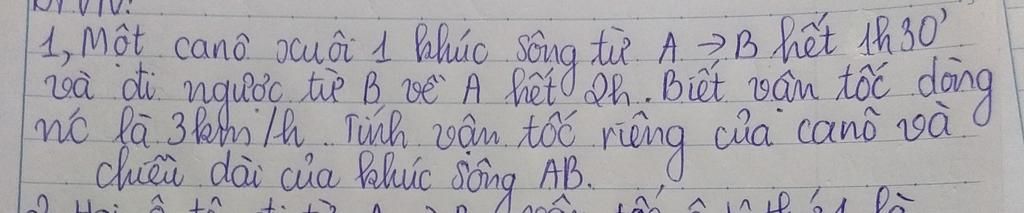 1, Một canô xuôi 1 khúc sông từ A → B hết 1h30'
và đi ngược từ B về A hết 2h. Biết vận tốc dòng
nc là 3km/h. Tính vận tốc riêng của canô và
chiều dài của khúc sông AB.